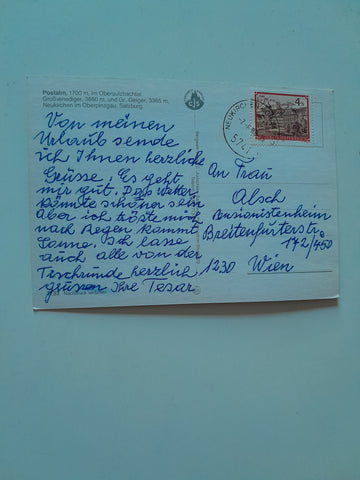 Postalm, 1700 m, im Obersulzbachtal
Großvenediger, 3660 m, und Gr. Geiger, 3365 m,
Neukirchen im Oberpinzgau, Salzburg
Von meinen
Urlaub sende
ich Ihnen herzliche
Grüsse. Es geht
mir gut. Das Wetter
könnte schöner sein
Aber ich tröste mich
nach Regen kommt
Sonne. Ich lasse
auch alle von der
herzlich
grüssen Ihre Tesar
4 S
NEUKIRCH
5741
An Frau
Alsch
Pensionistenheim
Breitenfurterstr.
172/450
1230 Wien